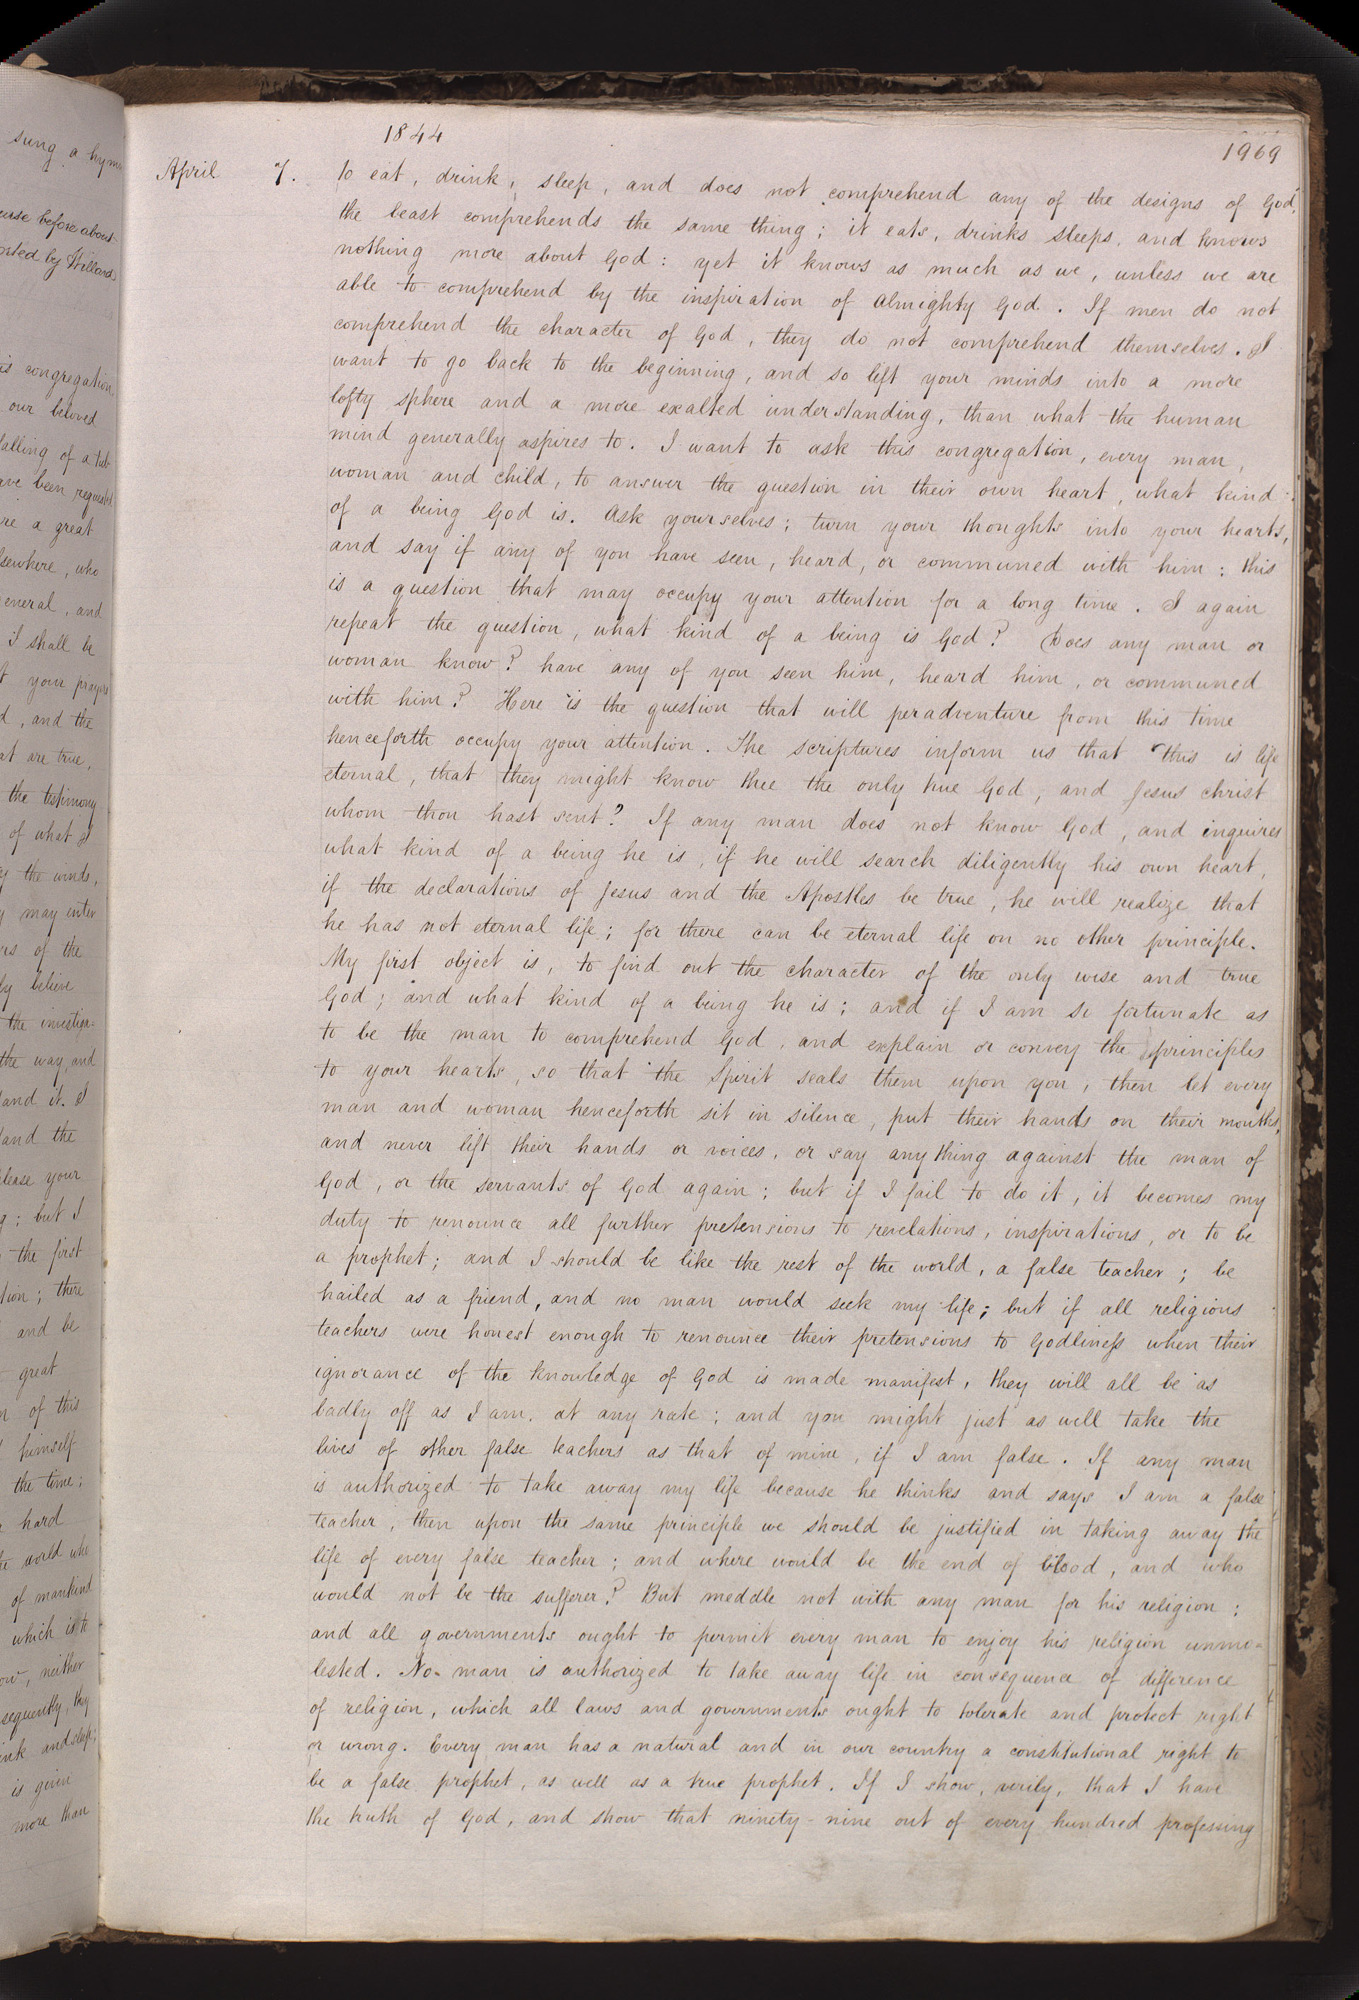 sung a hymn
before about
ported by Willard
congregation
our beloved
falling of a tub
have been requested
are a great
elsewhere, who
general, and
I shall be
your prayers
and the
that are true,
the testimony
of what I
the winds,
may enter
of the
believe
the investiga-
the way, and
and it. I
and the
please your
; but I
the first
tion; there
and be
great
of this
himself
the time;
hard
the world who
of mankind
which is to
neither
consequently, they
drink and sleep;
is given
more than
1844
1969
April 7. to eat, drink, sleep, and does not comprehend any of the designs of God,
the least comprehends the same thing; it eats, drinks sleeps, and knows
nothing more about God: yet it knows as much as we, unless we are
able to comprehend by the inspiration of Almighty God. If men do not
comprehend the character of God, they do not comprehend themselves. I
want to go back to the beginning, and so lift your minds into a more
lofty sphere and a more exalted understanding, than what the human
mind generally aspires to. I want to ask this congregation, every man,
woman and child, to answer the question in their own heart, what kind
of a being God is. Ask yourselves; turn your thoughts into your hearts,
and say if any of you have seen, heard, or communed with him: this
is a question that may occupy your attention for a long time. I again
repeat the question, what kind of a being is God? Does any man or
woman know? have any of you seen him, heard him, or communed
with him? Here is the question that will peradventure from this time
henceforth occupy your attention. The scriptures inform us that "this is life
eternal, that they might know thee the only true God, and Jesus christ
whom thou hast sent? If any man does not know God, and inquires
what kind of a being he is, if he will search diligently his own heart,
if the declarations of Jesus and the Apostles be true, he will realize that
he has not eternal life; for there can be eternal life on no other principle.
My first object is, to find out the character of the only wise and true
God; and what kind of a being he is; and if I am so fortunate as
to be the man to comprehend God, and explain or convey the principles
to your hearts, so that the Spirit seals them upon you, then let every
man and woman henceforth sit in silence, put their hands on their mouths,
and never lift their hands or voices, or say anything against the man of
God, or the servants of God again; but if I fail to do it, it becomes my
duty to renounce all further pretensions to revelations, inspirations, or to be
a prophet; and I should be like the rest of the world, a false teacher; be
hailed as a friend, and no man would seek my life; but if all religious
teachers were honest enough to renounce their pretensions to Godliness when their
ignorance of the knowledge of God is made manifest, they will all be as
badly off as I am, at any rate; and you might just as well take the
lives of other false teachers as that of mine, if I am false. If any man
is authorized to take away my life because he thinks and says I am a false
teacher, then upon the same principle we should be justified in taking away the
life of every false teacher; and where would be the end of blood, and who
would not be the sufferer? But meddle not with any man for his religion;
and all governments ought to permit every man to enjoy his religion unmo-
lested. No man is authorized to take away life in consequence of difference
of religion, which all laws and governments ought to tolerate and protect right
or wrong. Every man has a natural and in our country a constitutional right to
be a false prophet, as well as a true prophet. If I show, verily, that I have
the truth of God, and show that ninety-nine out of every hundred professing